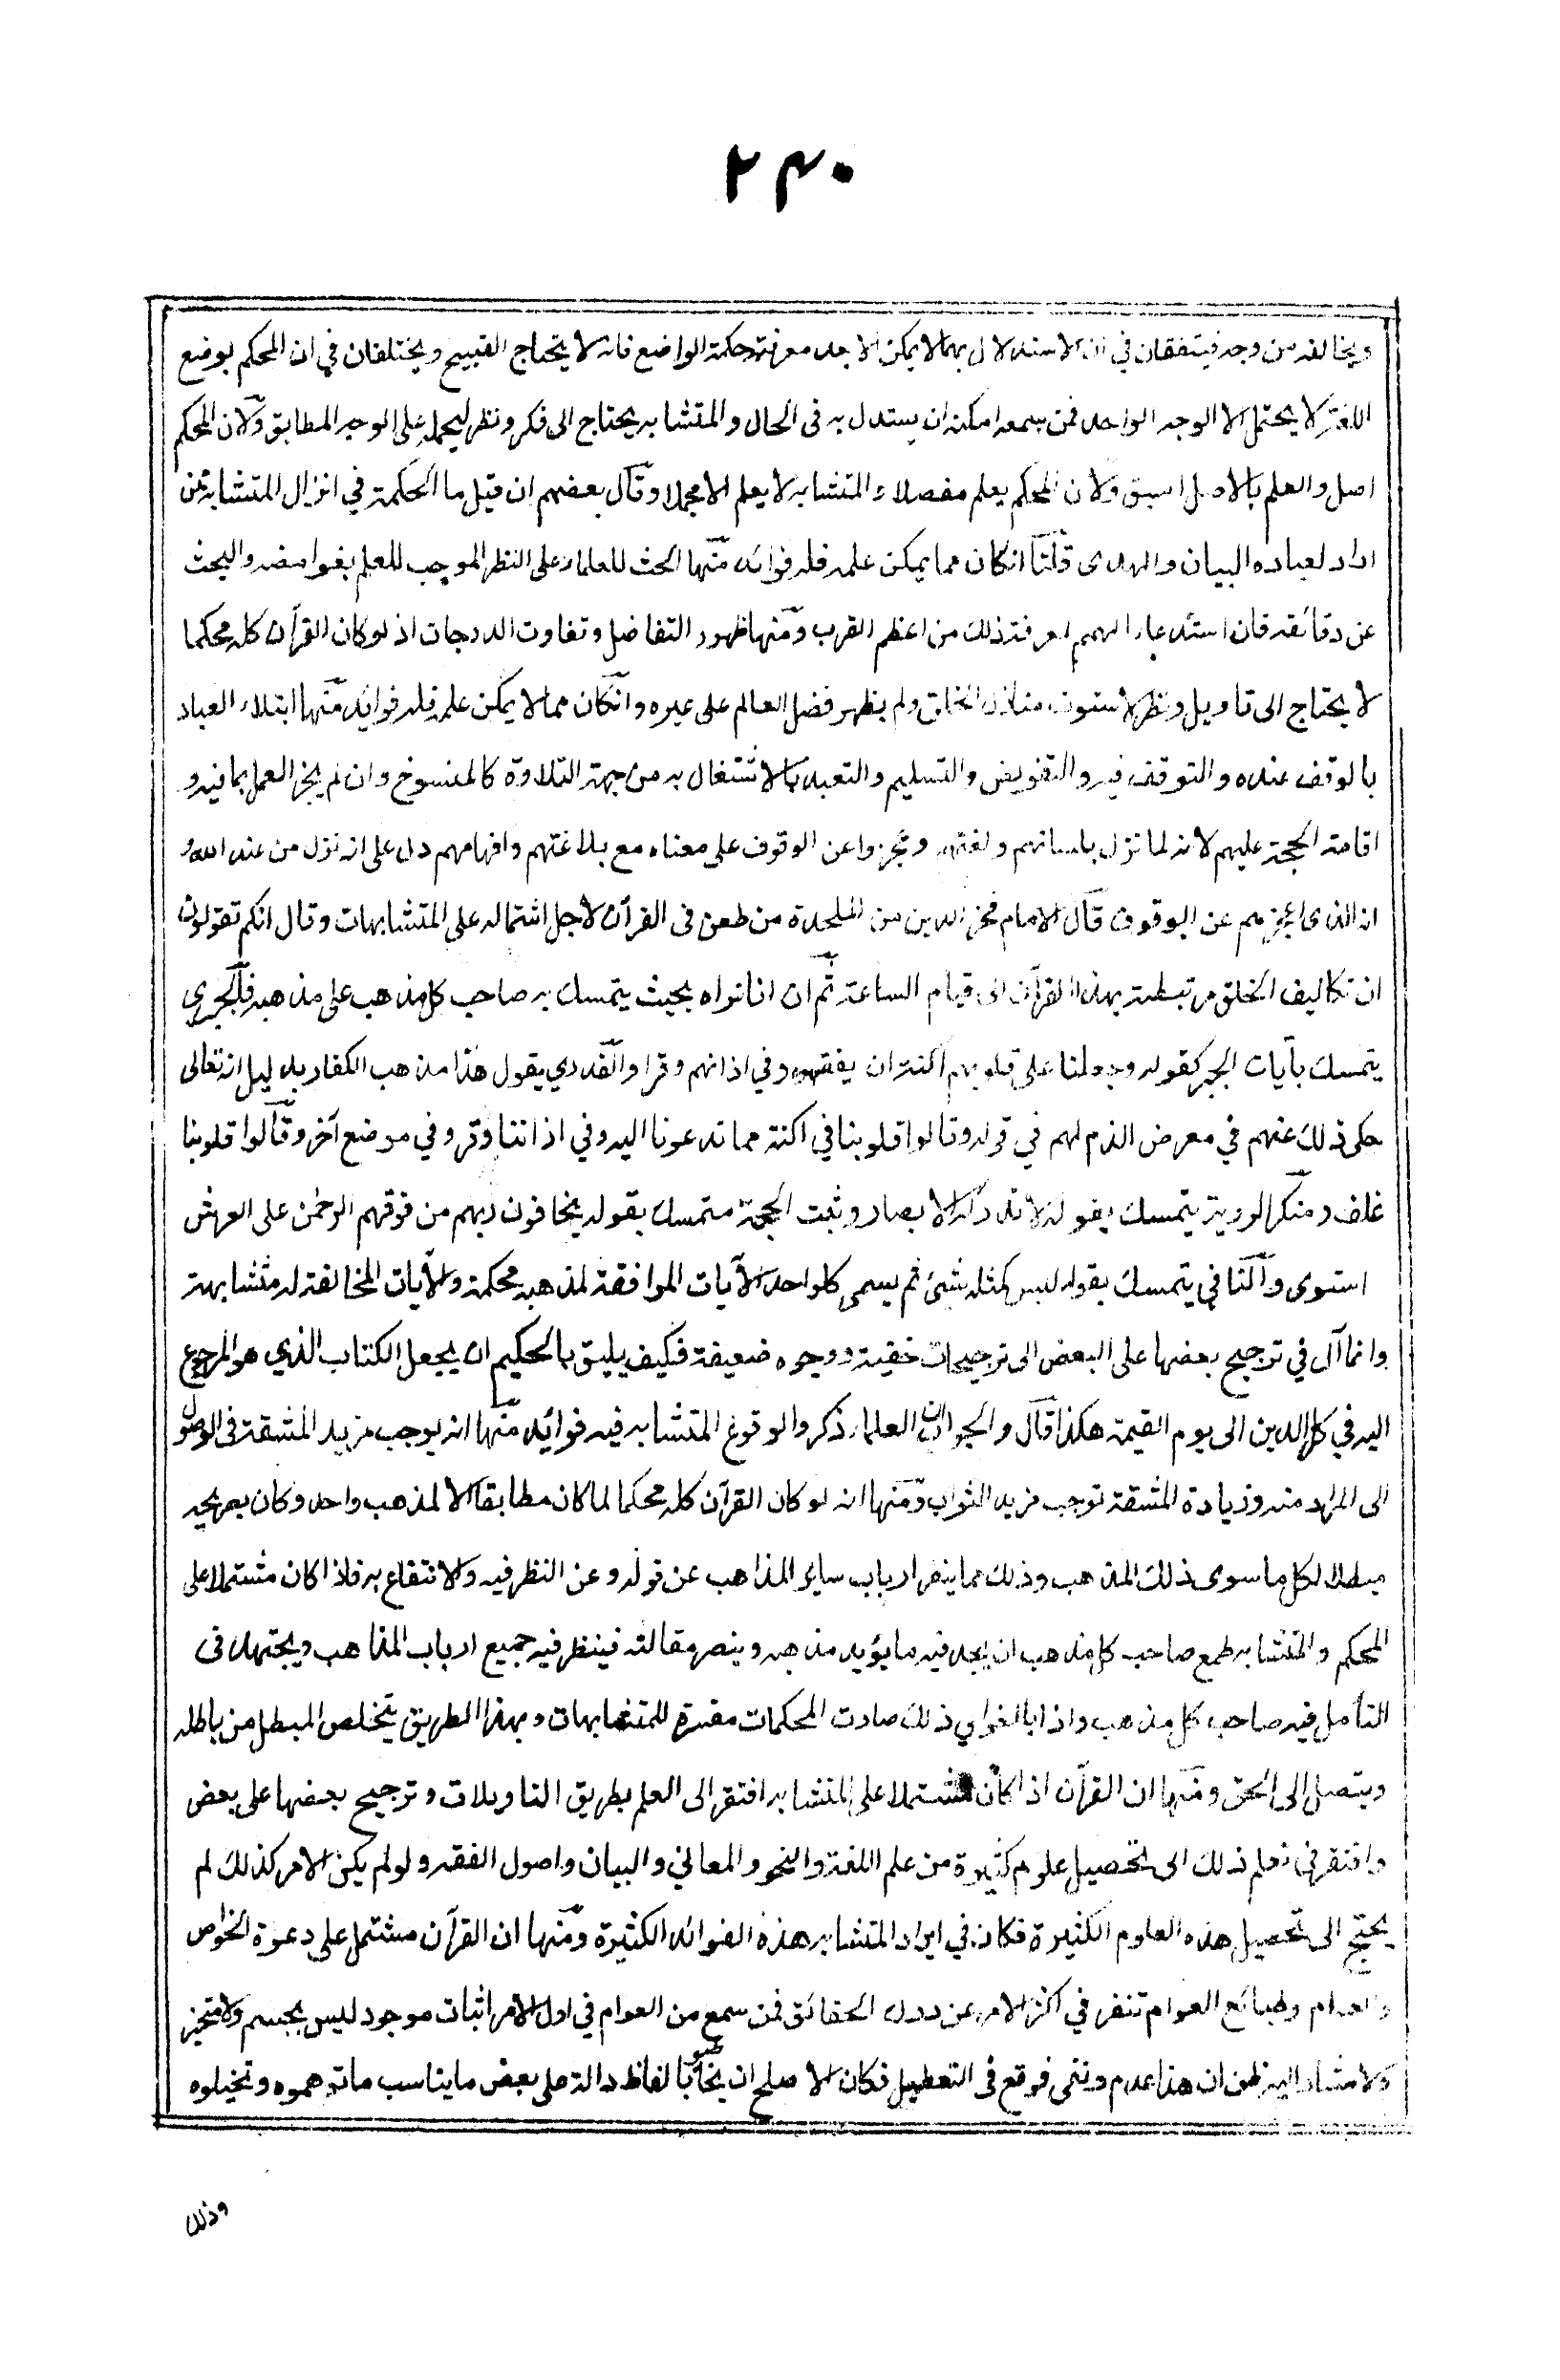 ٢٣٠
ويخالفه من وجه فيتفقان في ان الاستدلال بهما لا يمكن الا بعد معرفة حكمة الواضع فانه لا يحتاج القبيح ويختلفان في ان المحكم بوضع
اللغة لا يحتمل الا الوجه الواحد فمن سمعه امكنه ان يستدل به في الحال والمتشابه يحتاج الى فكر ونظر ليحمله على الوجه المطابق ولان المحكم
اصل والعلم بالاصل اسبق ولان المحكم يعلم مفصلا والمتشابه لا يعلم الا مجملا وقال بعضهم ان قيل ما الحكمة في انزال المتشابه ممن
اراد لعباده البيان والهدى قلنا انكان مما يمكن علمه فله فوائد منها الحث للعلماء على النظر الموجب للعلم بغوامضه والبحث
عن دقائقه فان استدعاء الهمم لمعرفة ذلك من اعظم القرب ومنها ظهور التفاضل وتفاوت الدرجات اذ لو كان القرآن كله محكما
لا يحتاج الى تاويل ونظر لاستوت منازل الخلق ولم يظهر فضل العالم على غيره وانكان مما لا يمكن علمه فله فوائد منها ابتلاء العباد
بالوقف عنده والتوقف فيه والتفويض والتسليم والتعبد بالاشتغال به من جهة التلاوة كالمنسوخ وان لم يجز العمل بما فيه و
اقامة الحجة عليهم لانه لما نزل بلسانهم ولغتهم وعجزوا عن الوقوف على معناه مع بلاغتهم وافهامهم دل على انه نزل من عند الله و
ان الذي اعجزهم عن الوقوف قال الامام فخر الدين من الملحدة من طعن في القرآن لاجل اشتماله على المتشابهات وقال انكم تقولون
ان تكاليف الخلق مرتبطة بهذا القرآن الى قيام الساعة ثم ان انا نراه بحيث يتمسك به صاحب كل مذهب على مذهبه فالجبري
يتمسك بآيات الجبر كقوله وجعلنا على قلوبهم اكنة ان يفقهوه وفي اذانهم وقرا والقدري يقول هذا مذهب الكفار بدليل انه تعالى
حكى ذلك عنهم في معرض الذم لهم في قوله وقالوا قلوبنا في اكنة مما تدعونا اليه وفي اذاننا وقر وفي موضع آخر وقالوا قلوبنا
غلف ومنكر الروية يتمسك بقوله لا تدركه الابصار ومثبت الجهة متمسك بقوله يخافون ربهم من فوقهم الرحمن على العرش
استوى والنافي يتمسك بقوله ليس كمثله شيئ ثم يسمى كل واحد الآيات الموافقة لمذهبه محكمة والآيات المخالفة له متشابهة
وانما آل في ترجيح بعضها على البعض الى ترجيحات خفية ووجوه ضعيفة فكيف يليق بالحكيم ان يجعل الكتاب الذي هو المرجوع
اليه في كل الدين الى يوم القيمة هكذا قال والجواب ان العلماء ذكروا لوقوع المتشابه فيه فوائد منها انه يوجب مزيد المشقة في الوصول
الى المراد منه وزيادة المشقة توجب مزيد الثواب ومنها انه لو كان القرآن كله محكما لما كان مطابقا الا لمذهب واحد وكان بصريحه
مبطلا لكل ما سوى ذلك المذهب وذلك مما ينفر ارباب ساير المذاهب عن قوله وعن النظر فيه والانتفاع به فاذا كان مشتملا على
المحكم والمتشابه طمع صاحب كل مذهب ان يجد فيه ما يؤيد مذهبه وينصر مقالته فينظر فيه جميع ارباب المذاهب ويجتهد في
التأمل فيه صاحب كل مذهب واذا بالغوا في ذلك صارت المحكمات مفسرة للمتشابهات وبهذا الطريق يتخلص المبطل من باطله
ويتصل الى الحق ومنها ان القرآن اذا كان مشتملا على المتشابه افتقر الى العلم بطريق التاويلات وترجيح بعضها على بعض
وافتقر في تعلم ذلك الى تحصيل علوم كثيرة من علم اللغة والنحو والمعاني والبيان واصول الفقه ولو لم يكن الامر كذلك لم
يحتج الى تحصيل هذه العلوم الكثيرة فكان في ايراد المتشابه هذه الفوائد الكثيرة ومنها ان القرآن مشتمل على دعوة الخواص
والعوام وطبائع العوام تنفر في اكثر الامر عن درك الحقائق فمن سمع من العوام في اول الامر اثبات موجود ليس بجسم ولا متحيز
ولا مشار اليه ظن ان هذا عدم ونفى فوقع في التعطيل فكان الاصلح ان يخاطبوا بالفاظ دالة على بعض ما يناسب ما توهموه وتخيلوه
وذلك